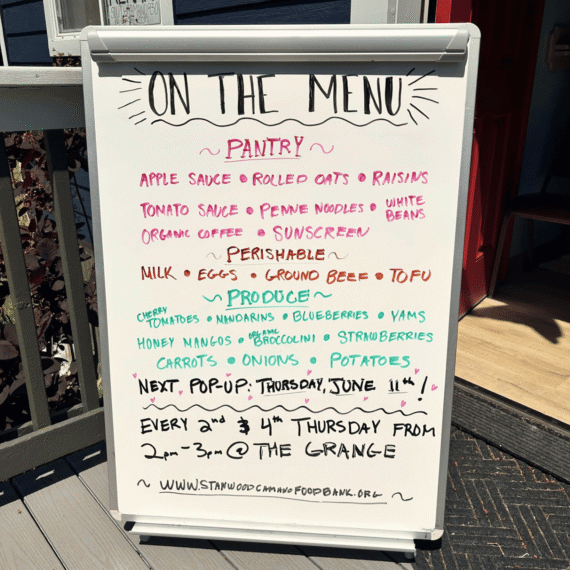 ON THE MENU
~ PANTRY ~
APPLE SAUCE • ROLLED OATS • RAISINS
TOMATO SAUCE • PENNE NOODLES • WHITE BEANS
ORGANIC COFFEE • SUNSCREEN
~ PERISHABLE ~
MILK • EGGS • GROUND BEEF • TOFU
~ PRODUCE ~
CHERRY TOMATOES • MANDARINS • BLUEBERRIES • YAMS
HONEY MANGOS • ORGANIC BROCCOLINI • STRAWBERRIES
CARROTS • ONIONS • POTATOES
NEXT POP-UP: THURSDAY, JUNE 11th!
EVERY 2nd & 4th THURSDAY FROM
2pm-3pm @ THE GRANGE
~ WWW.STANWOODCAMANOFOODBANK.ORG ~